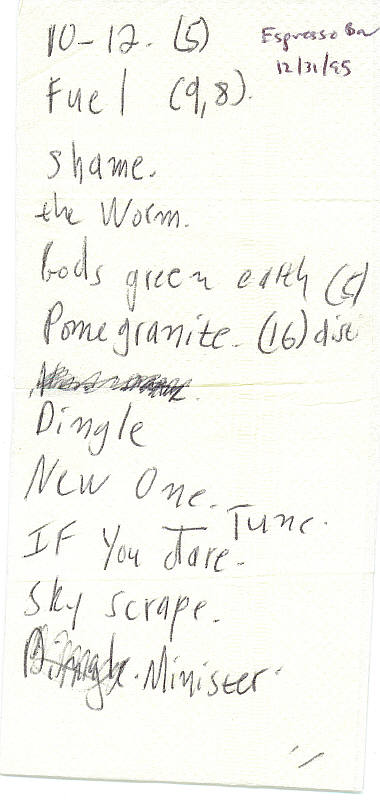 10-12. (5)
Espresso Bar
12/31/95
Fuel (9,8).
Shame.
the Worm.
Gods green earth (5)
Pomegranite. (16) dist
Dingle
New One.
Tune.
If You dare.
Sky scrape.
Dingle. Minister